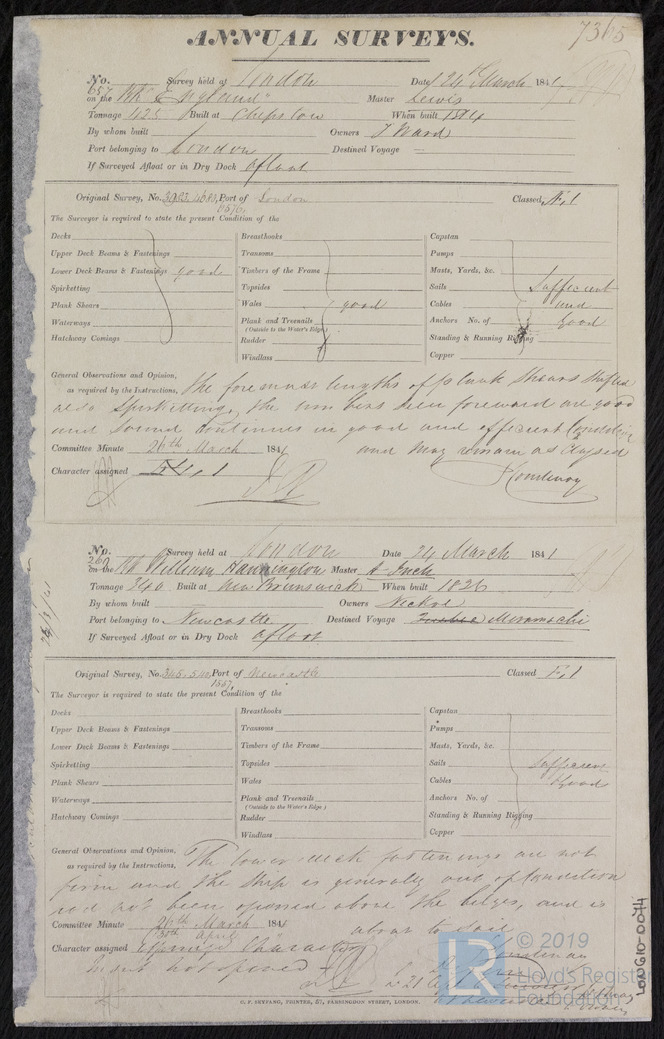 7365
ANNUAL SURVEYS.
No. 657 Survey held at London Date 24th March 1841
on the Bk England Master Lewis
Tonnage 425 Built at Chepstow When built 1814
By whom built Owners T Ward
Port belonging to London Destined Voyage —
If Surveyed Afloat or in Dry Dock afloat
Original Survey, No. Port of London Classed
The Surveyor is required to state the present Condition of the
Decks Breasthooks Capstan
Upper Deck Beams & Fastenings Transoms Pumps
Lower Deck Beams & Fastenings good Timbers of the Frame Masts, Yards, &c.
Spirketting Topsides Sails Sufficient
Plank Shears Wales good Cables and
Waterways Plank and Treenails Anchors No. of Good
(Outside to the Water's Edge)
Hatchway Comings Rudder Standing & Running Rigging
Windlass Copper
General Observations and Opinion,
as required by the Instructions, The foremost lengths of plank Shears Shifted
also Spirkitting, the timbers seen forward are good
and sound continues in good and efficient Condition
Committee Minute 26th March 1841 and may remain as Classed
Character assigned
No. 260 Survey held at London Date 24 March 1841
on the Bk William Hannington Master A Inch
Tonnage 340 Built at New Brunswick When built 1826
By whom built Owners
Port belonging to Newcastle Destined Voyage Meramachi
If Surveyed Afloat or in Dry Dock afloat
Original Survey, No. 1557 Port of Newcastle Classed E.1
The Surveyor is required to state the present Condition of the
Decks Breasthooks Capstan
Upper Deck Beams & Fastenings Transoms Pumps
Lower Deck Beams & Fastenings Timbers of the Frame Masts, Yards, &c.
Spirketting Topsides Sails Sufficient
Plank Shears Wales Cables Good
Waterways Plank and Treenails Anchors No. of
(Outside to the Water's Edge)
Hatchway Comings Rudder Standing & Running Rigging
Windlass Copper
General Observations and Opinion,
as required by the Instructions, The lower deck fastenings are not
firm and the Ship is generally out of Condition
not been opened above the bilges, and is
Committee Minute 26th March 1841 about to Sail
30th April
Character assigned Character
not opened
C. F. SEYFANG, PRINTER, 57, FARRINGDON STREET, LONDON.
LR © 2019
Lloyd's Register
Foundation
LON610-0074